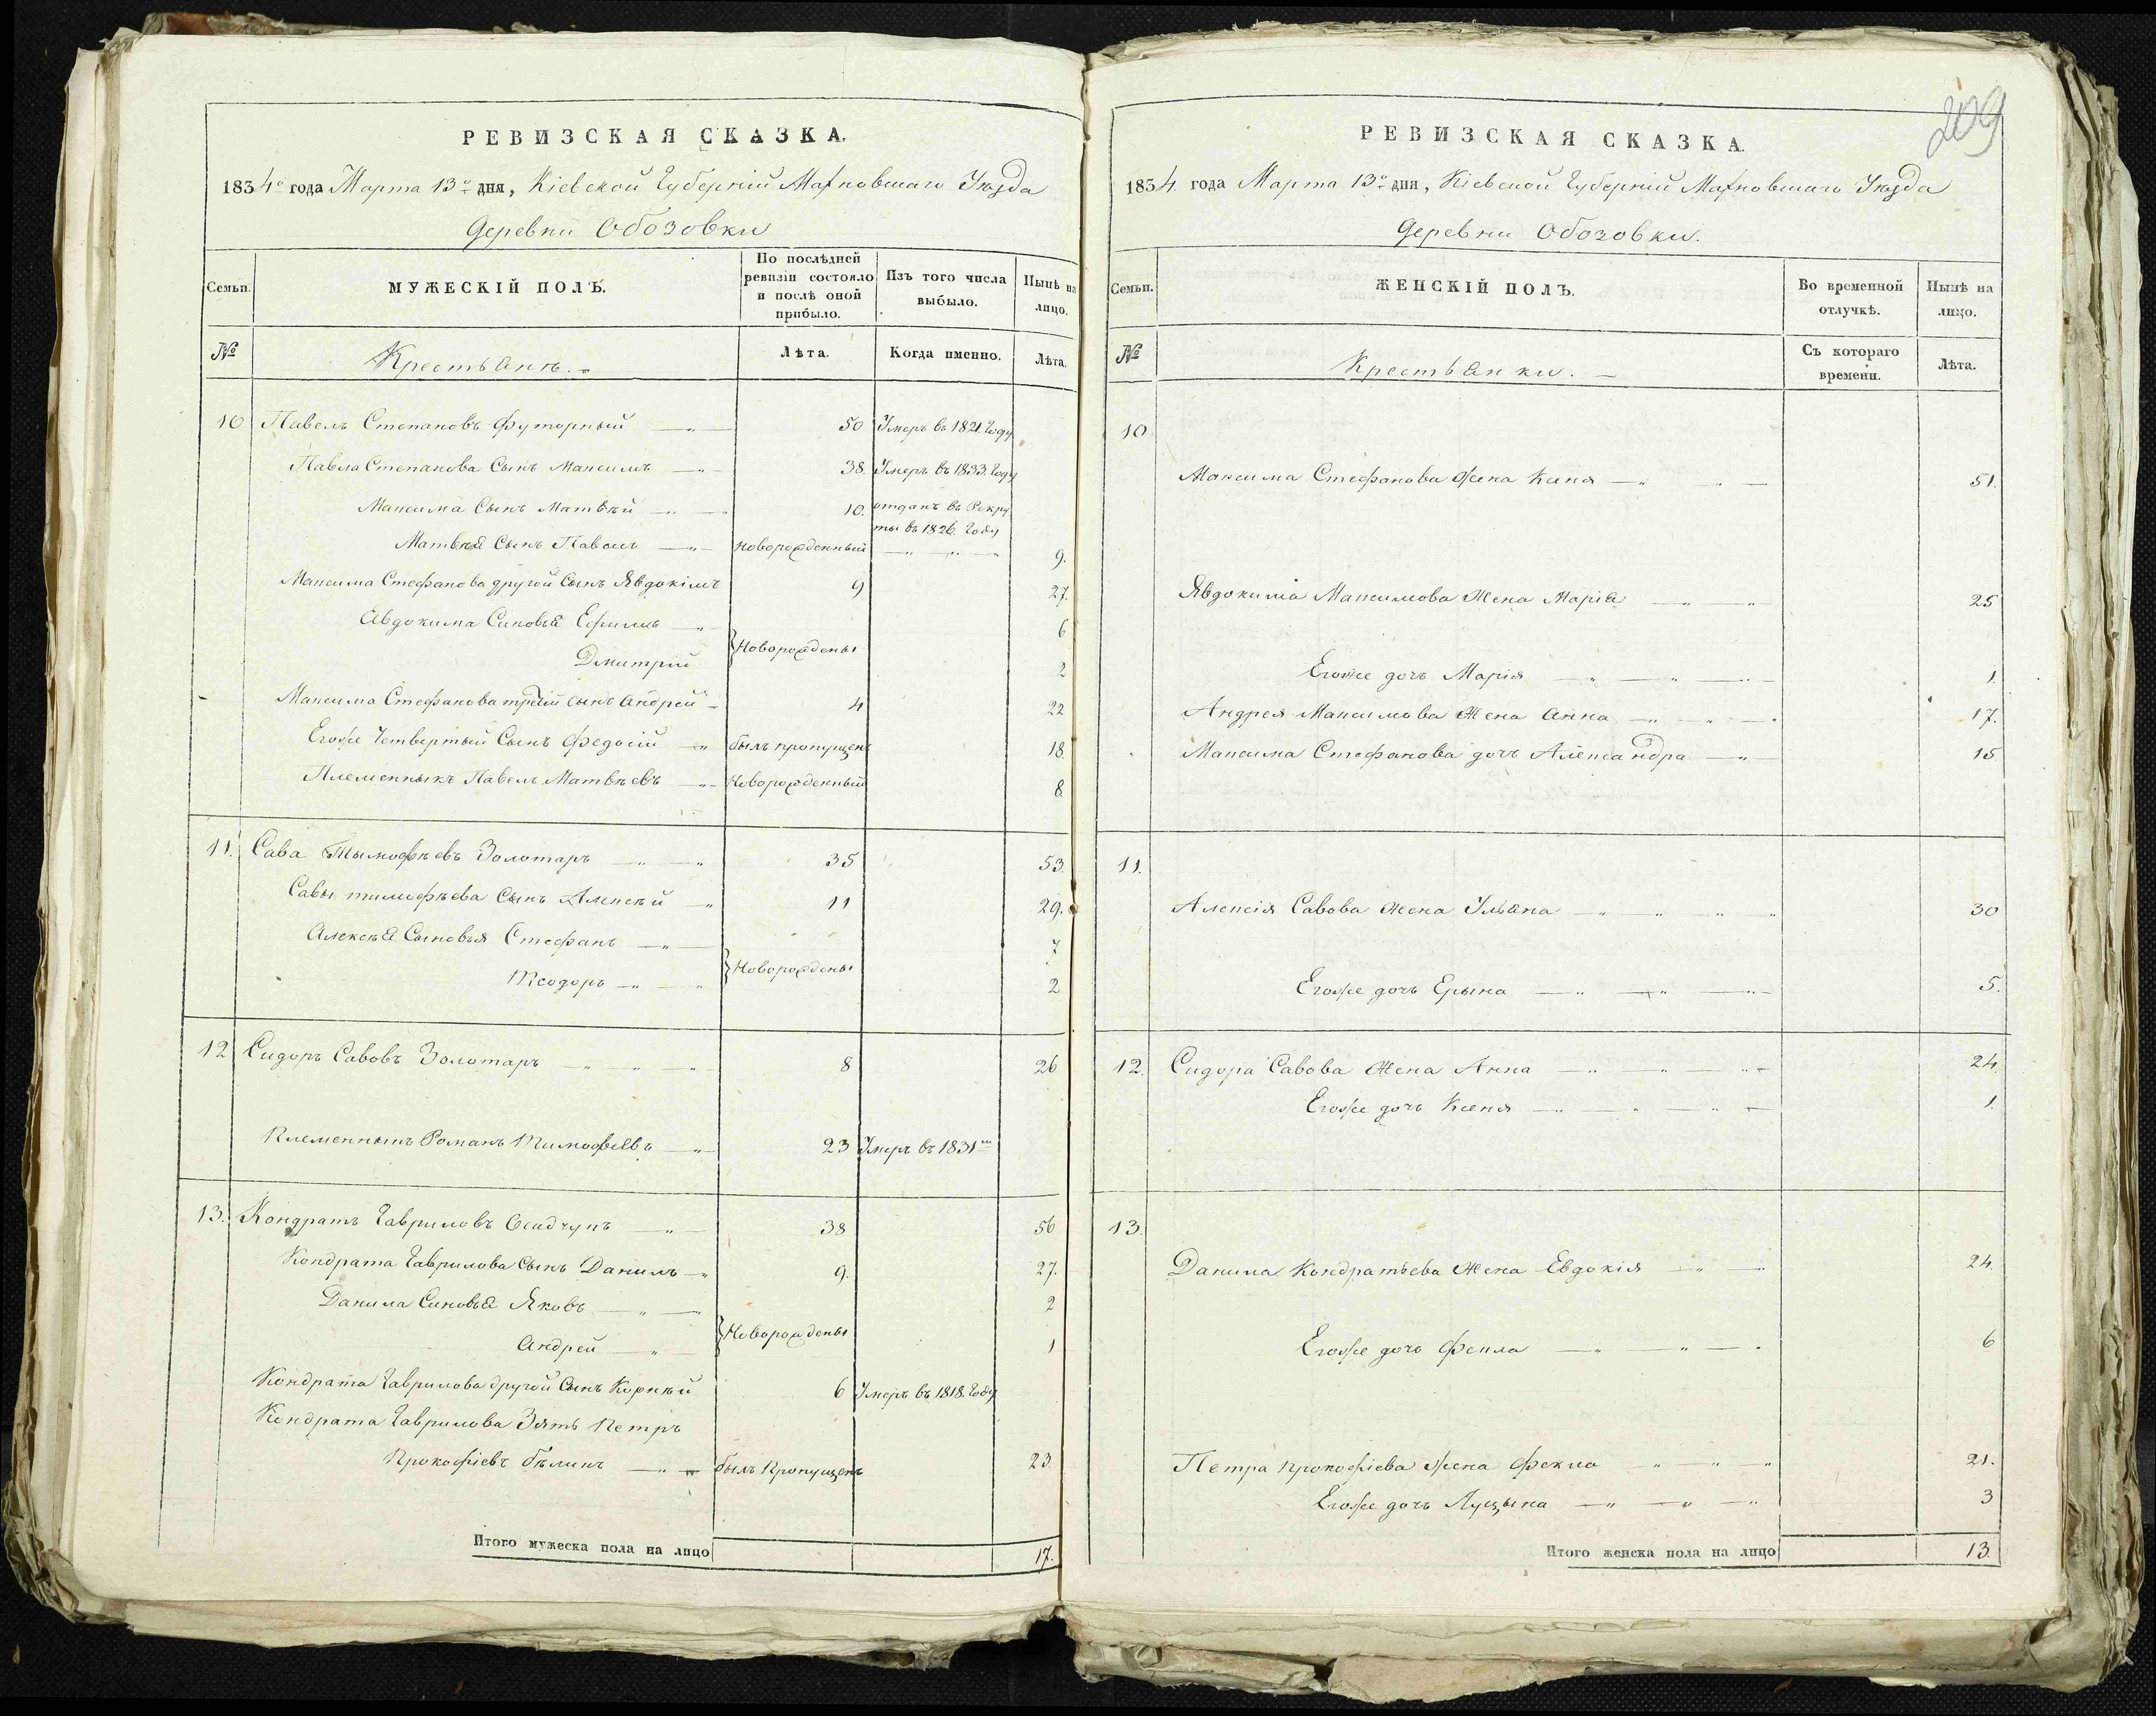 РЕВИЗСКАЯ СКАЗКА.
1834го года Марта 13го дня, Кіевской Губерніи Махновскаго Уезда
Деревни Обозовки
Семьи.
МУЖЕСКІЙ ПОЛЪ.
По послѣдней ревизіи состояло и послѣ оной прибыло.
Изъ того числа выбыло.
Нынѣ на лицо.
№
Крестьянъ.
Лѣта.
Когда именно.
Лѣта.
10 Павелъ Степановъ Футорный 50 Умеръ въ 1821. Году
Павла Степанова Сынъ Максимъ 38. Умеръ въ 1833. Году
Максима Сынъ Матвѣй 10. отданъ въ Рекру
ты въ 1826. Году
Матвѣя Сынъ Павелъ новорожденный 9.
Максима Стефанова другой Сынъ Явдокімъ 9 27.
Авдокима Синовья Ефимъ 6
Новорождены
Дмитрій 2
Максима Стефанова третій сынъ Андрей 4 22
Егоже Четвертый Сынъ Федосій былъ пропущенъ 18.
Племенныкъ Павелъ Матвѣевъ Новорожденный 8.
11. Сава Тымофѣевъ Золотаръ 35 53.
Савы тимофѣева Сынъ Алексѣй 11 29.
Алексѣя Сыновья Стефанъ 7
Новорождены
Теодоръ 2
12 Сидоръ Савовъ Золотаръ 8 26
Племенныкъ Романъ Тимофеевъ 23 Умеръ въ 1831м
13. Кондратъ Гавриловъ Осадчукъ 38 56
Кондрата Гаврилова Сынъ Данилъ 9. 27.
Данила Синовья Яковъ 2
Новорождены
Андрей 1
Кондрата Гаврилова другой Сынъ Корнѣй 6 Умеръ въ 1818. Году
Кондрата Гаврилова Зять Петръ
Прокофіевъ бѣликъ былъ Пропущенъ 23
Итого мужеска пола на лицо 17.
209
РЕВИЗСКАЯ СКАЗКА.
1834 года Марта 13го дня, Кіевской Губерніи Махновскаго Уезда
Деревни Обозовки.
Семьи.
ЖЕНСКІЙ ПОЛЪ.
Во временной отлучкѣ.
Нынѣ на лицо.
№
Крестьянки.
Съ котораго времени.
Лѣта.
10
Максима Стефанова Жена Ксеня 51.
Явдокима Максимова Жена Марія 25
Егоже дочь Марія 1.
Андрея Максимова Жена Анна 17.
Максима Стефанова дочь Александра 15
11.
Алексія Савова Жена Ульяна 30
Егоже дочь Ерына 5.
12. Сидора Савова Жена Анна 24.
Егоже дочь Ксеня 1.
13.
Данила Кондратьева Жена Евдокія 24.
Егоже дочь Фекла 6
Петра Прокофіева Жена Фекла 21.
Егоже дочь Луцына 3
Итого женска пола на лицо 13.